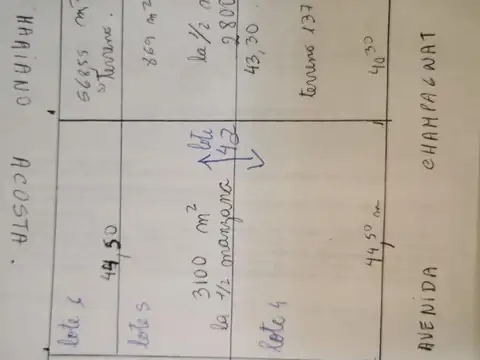 MARIANO ACOSTA.
56855 m²
terreno.
869 m²
la 1/2 m
2800
43,30.
terreno 137
40,30
lote 6
44,50
lote 5
3100 m²
la 1/2 manzana
lote
42
lote 4
44,50 m
AVENIDA CHAMPAGNAT